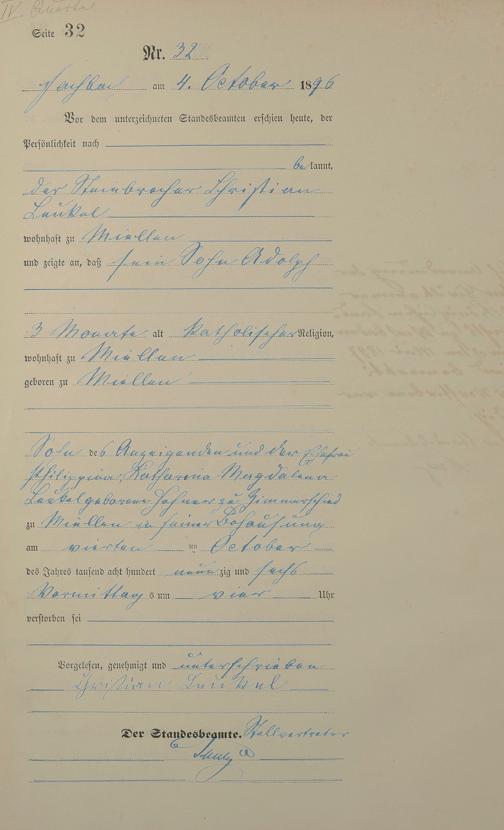 IV Quartal
Seite 32
Nr. 32
Fachbach am 4. October 1896
Vor dem unterzeichneten Standesbeamten erschien heute, der
Persönlichkeit nach
be kannt,
der Steinbrecher Christian
Leukel
wohnhaft zu Miellen
und zeigte an, daß sein Sohn Adolph
3 Monate alt katholischer Religion,
wohnhaft zu Miellen
geboren zu Miellen
Sohn des Anzeigenden und der Ehefrau
Philippina Katharina Magdalena
Leukel geborene zu Zimmerschied
zu Miellen in seiner Behausung
am vierten ten October
des Jahres tausend acht hundert neun zig und sechs
Vormittag s um vier Uhr
verstorben sei
Vorgelesen, genehmigt und unterschrieben
Christian Leukel
Der Standesbeamte. Stellvertreter